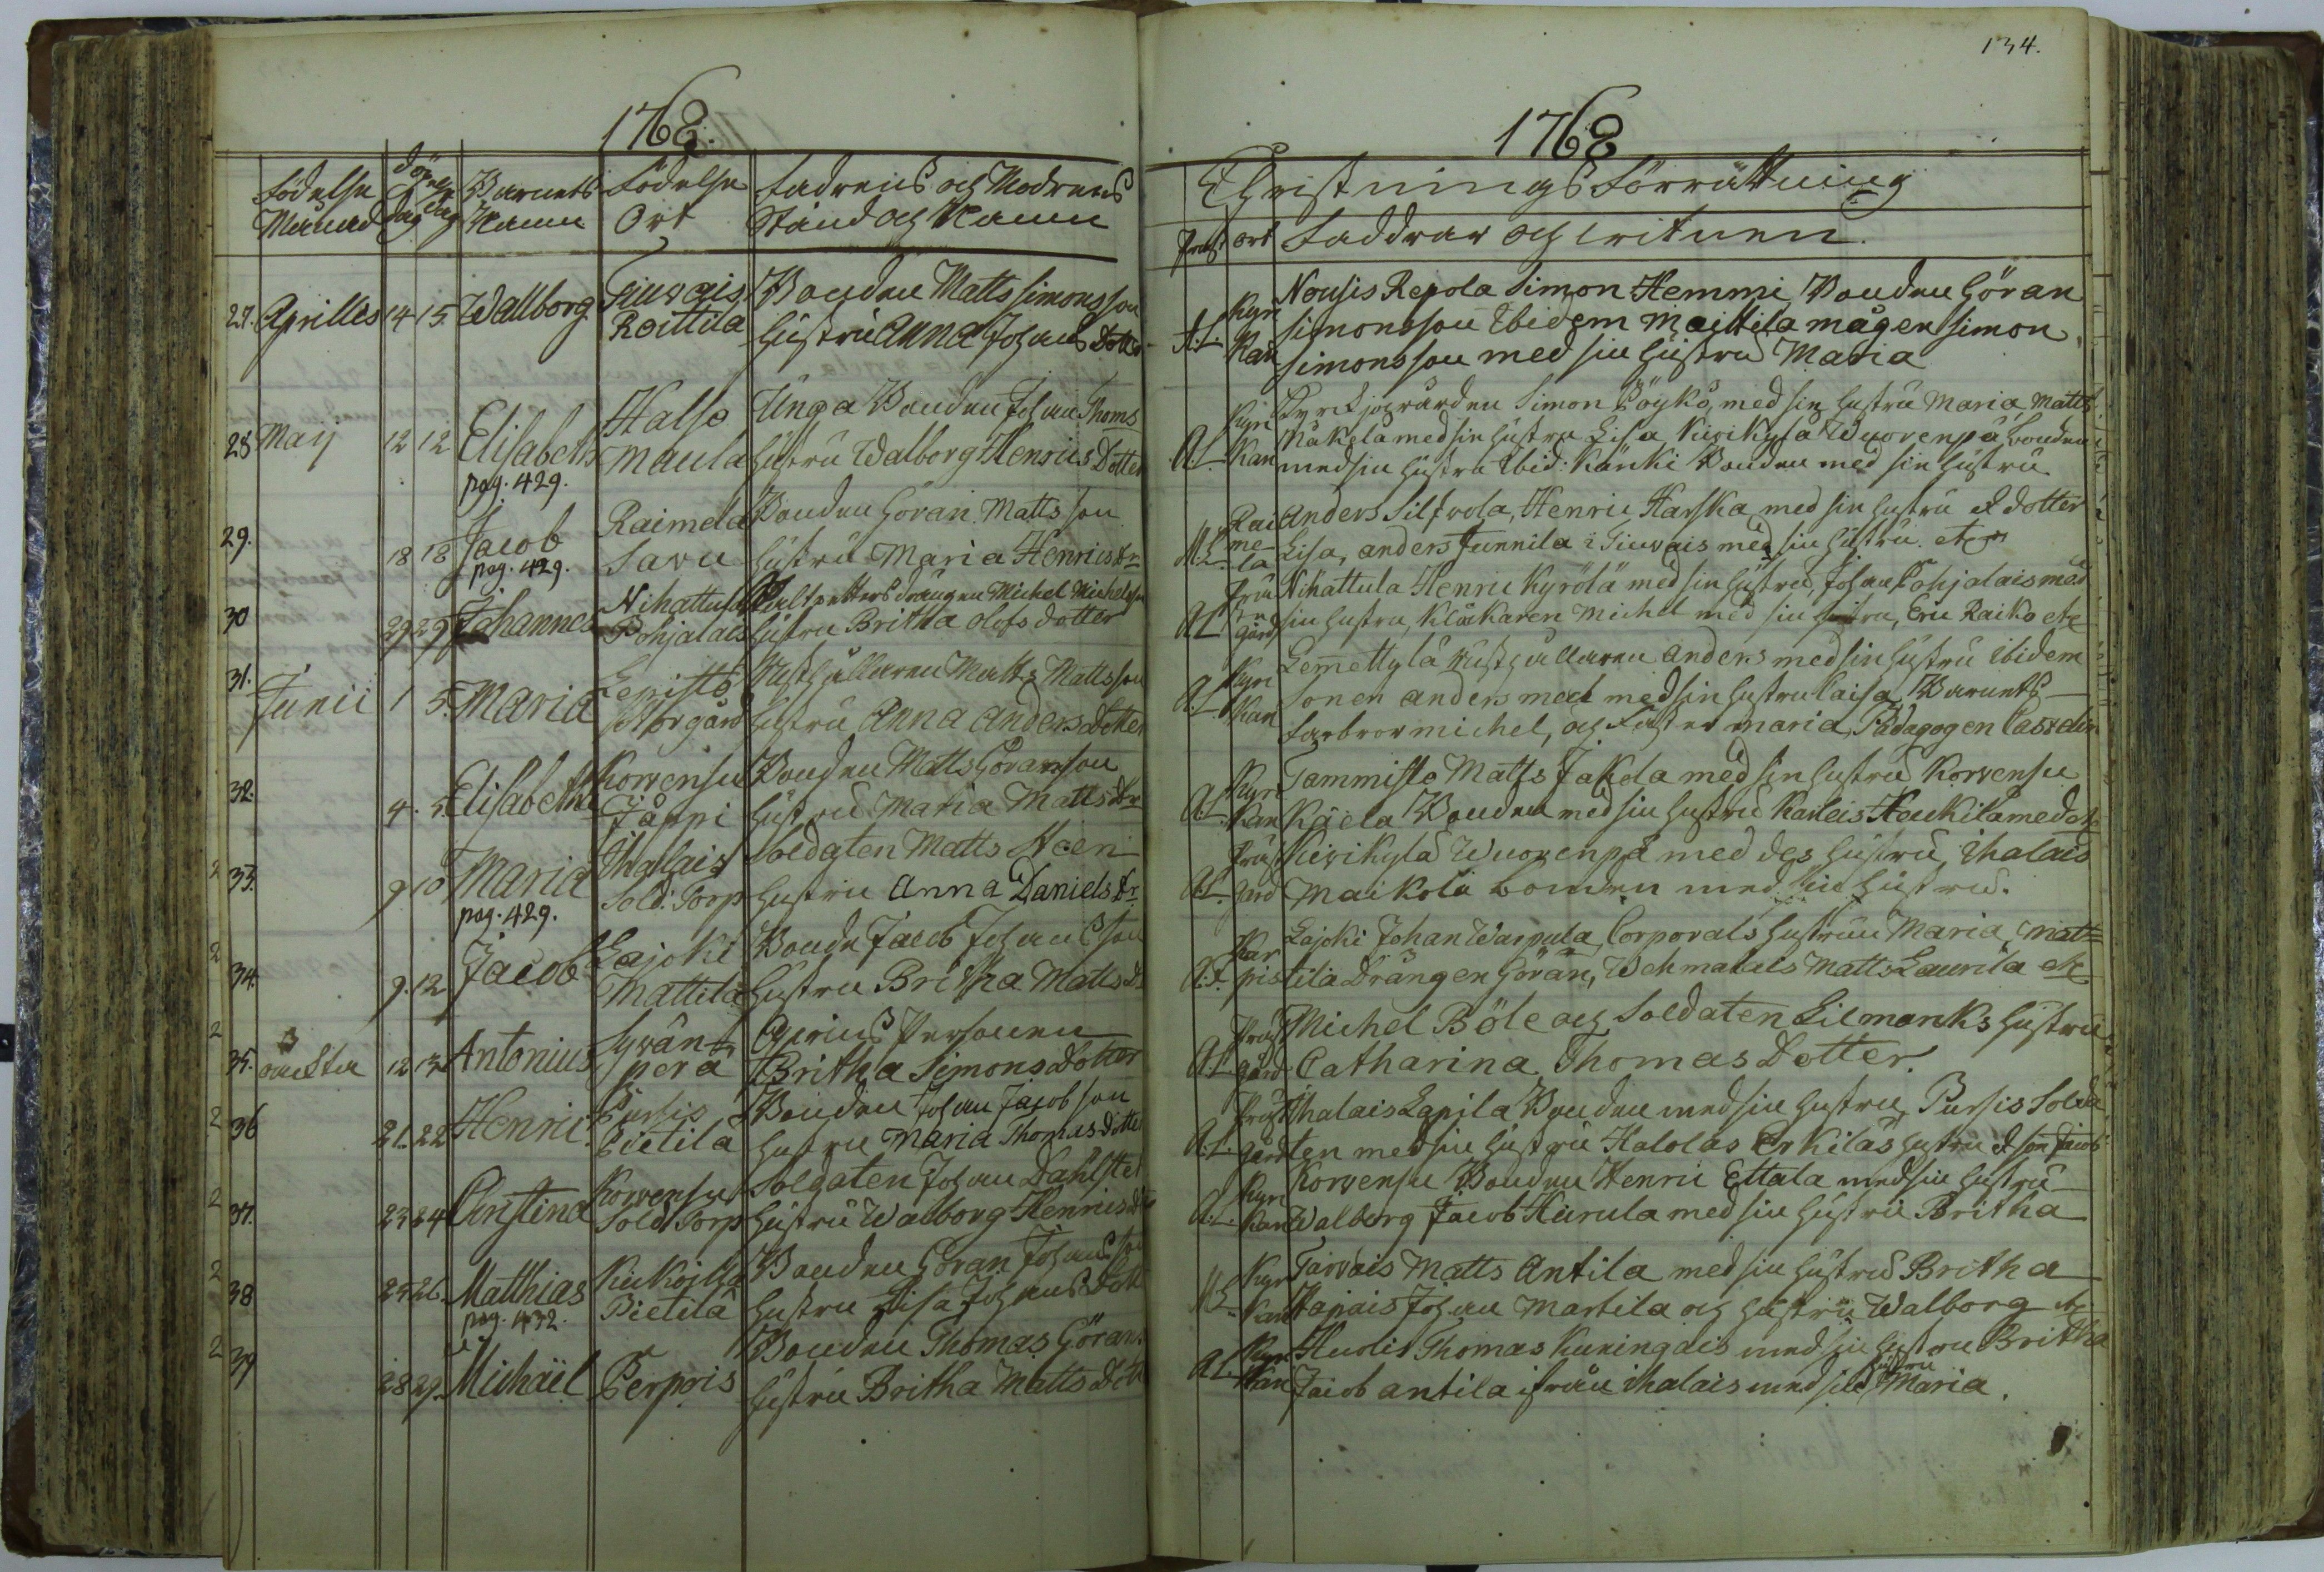 1768.
Födelse Månad
Dag
Döpelse dag
Barnets Namn
Födelse Ort
Fadrens och Modrens Stånd och Namn
27. Aprilles 14 15. Wallborg Tiuvais Bonden Matts Simonsson
Roittila hustru Anna Johans Dotter
28 Maij 12 12 Elisabeth Halso Unga Bonden Johan Thoms
pag. 429. Maula hustru Walborg Henrics Dotter
29. 18 18 Jacob Raimela Bonden Göran Matts son
pag. 429. Savu hustru Maria Henrics dr
30 29 29 Johannes Nihattula drängen Michel Michelsson
Pohjalais hustru Britha Olofs dotter
31. Junii 1 5. Maria Lepistö Rusthållaren Matts Mattsson
Norgård hustru Anna Anders Dotter
32. 4. 5. Elisabetha Korvensu Bonden Matts Göransson
Jåppi hustru Maria Matts dr
33. 9 10 Maria Ihalais Soldaten Matts Steen
pag. 429. Sold. Torp hustru Anna Daniels dr.
34. 9. 12 Jacob Lajoki Bonden Jacob Johans son
Mattila hustru Britha Matts d
35. oäckta 12 13 Antonius Syvän Qvins Personen
perä Britha Simons Dotter
36 21. 22 Henric Pursis Bonden Johan Jacob son
Pietilä hustru Maria Thomas dotter
37. 23 24 Christina Korvensu Soldaten Johan Dahlstet
Sold Torp hustru Walborg Henrics d
38 25 26. Matthias Kiukoilla Bonden Göran Johans son
pag. 432. Pietilä hustru Lisa Johans Dott
39 28 29. Michaël Perpois Bonden Thomas Görans
hustru Britha Matts dott
134.
1768
Christnings Förrättning
Präst ort Faddrar och Vitnen.
Nousis Repola Simon Hemmi Bonden Göran
A.L. Kyrkan Simonsson Ibidem Maittila mågen Simon
Simonsson med sin hustru Maria
Kyrckjovärden Simon Pöykö, med sin hustru Maria, Matts
A.L. Kyrkan Mäkelä med sin hustru Lisa Kivikylä Wuorenpä bonden
med sin hustru Ibid: Känki Bonden med sin hustru
Raimela Anders Silfvola, Henric Harska med sin hustru & dotter
Lisa, Anders Junnila i Tiuvais med sin hustru etc
A.L. Prästgård Nihattula Henric Kyrölä med sin hustru, Johan Pohjalais med
sin hustru, Klåkaren Michel med sin hustru, Eric Raiko etc
A.L. Kyrkan Lemettylä rusthållaren Anders med sin hustru Ibidem
Sonen Anders med med sin hustru Caisa, Barnets
Farbror Michel, och Faster Maria, Pædagogen Casselin
A.L. Kyrkan Tammisto Matts Jakola med sin hustru Korvensu
Käela Bonden med sin hustru Karleis Heikilä med etc
A.L. Prästgård Kivikylä Wuorenpä med des hustru, Ihalais
Maikola bonden med sin hustru.
Karpis Lajoki Johan Warpula, Corporals hustrun Maria, Matt=
tila Drängen Göran, Wehmalais Matts Laurila etc
A.L. Prästgård Michel Böle och Soldaten Lilmanks hustru
Catharina Thomas Dotter.
A.L. Prästgård Ihalais Lapila Bonden med sin hustru, Pursis Solda
ten med sin hustru Halolas Erkiläs hustru & son Jacob
A.L. Kyrkan Korvensu Bonden Henric Ettala med sin hustru
Walborg Jacob Hiirula med sin hustru Britha
Kyrkan Tarvais Matts Antila med sin hustru Britha
Hapais Johan Martila och hustru Walborg etc
A.L. Kyrkan Huolis Thomas Kuningais med sin hustru Britha
Jacob Antila ifrån Ihalais med sin hustru Maria.